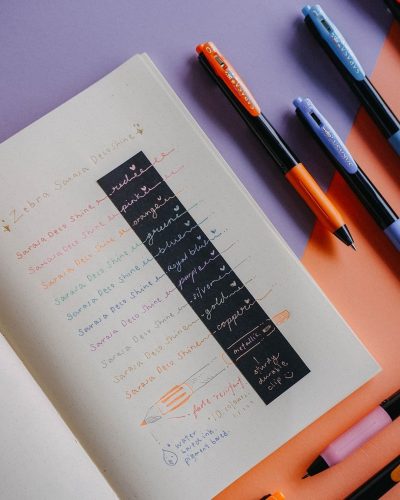 Zebra Sarasa Deco Shine
Sarasa Deco Shine red
Sarasa Deco Shine pink
Sarasa Deco Shine orange
Sarasa Deco Shine green
Sarasa Deco Shine blue
Sarasa Deco Shine royal blue
Sarasa Deco Shine purple
Sarasa Deco Shine silver
Sarasa Deco Shine gold
Sarasa Deco Shine copper
metallic
!
sturdy
durable
clip
resistant
10
water
based ink
pigment based